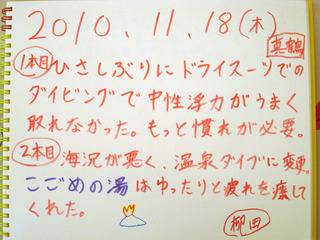 2010.11.18(木)
真鶴
1本目 ひさしぶりにドライスーツでの
ダイビングで中性浮力がうまく
取れなかった。もっと慣れが必要。
2本目 海況が悪く、温泉ダイブに変更。
こごめの湯はゆったりと疲れを癒して
くれた。
柳田